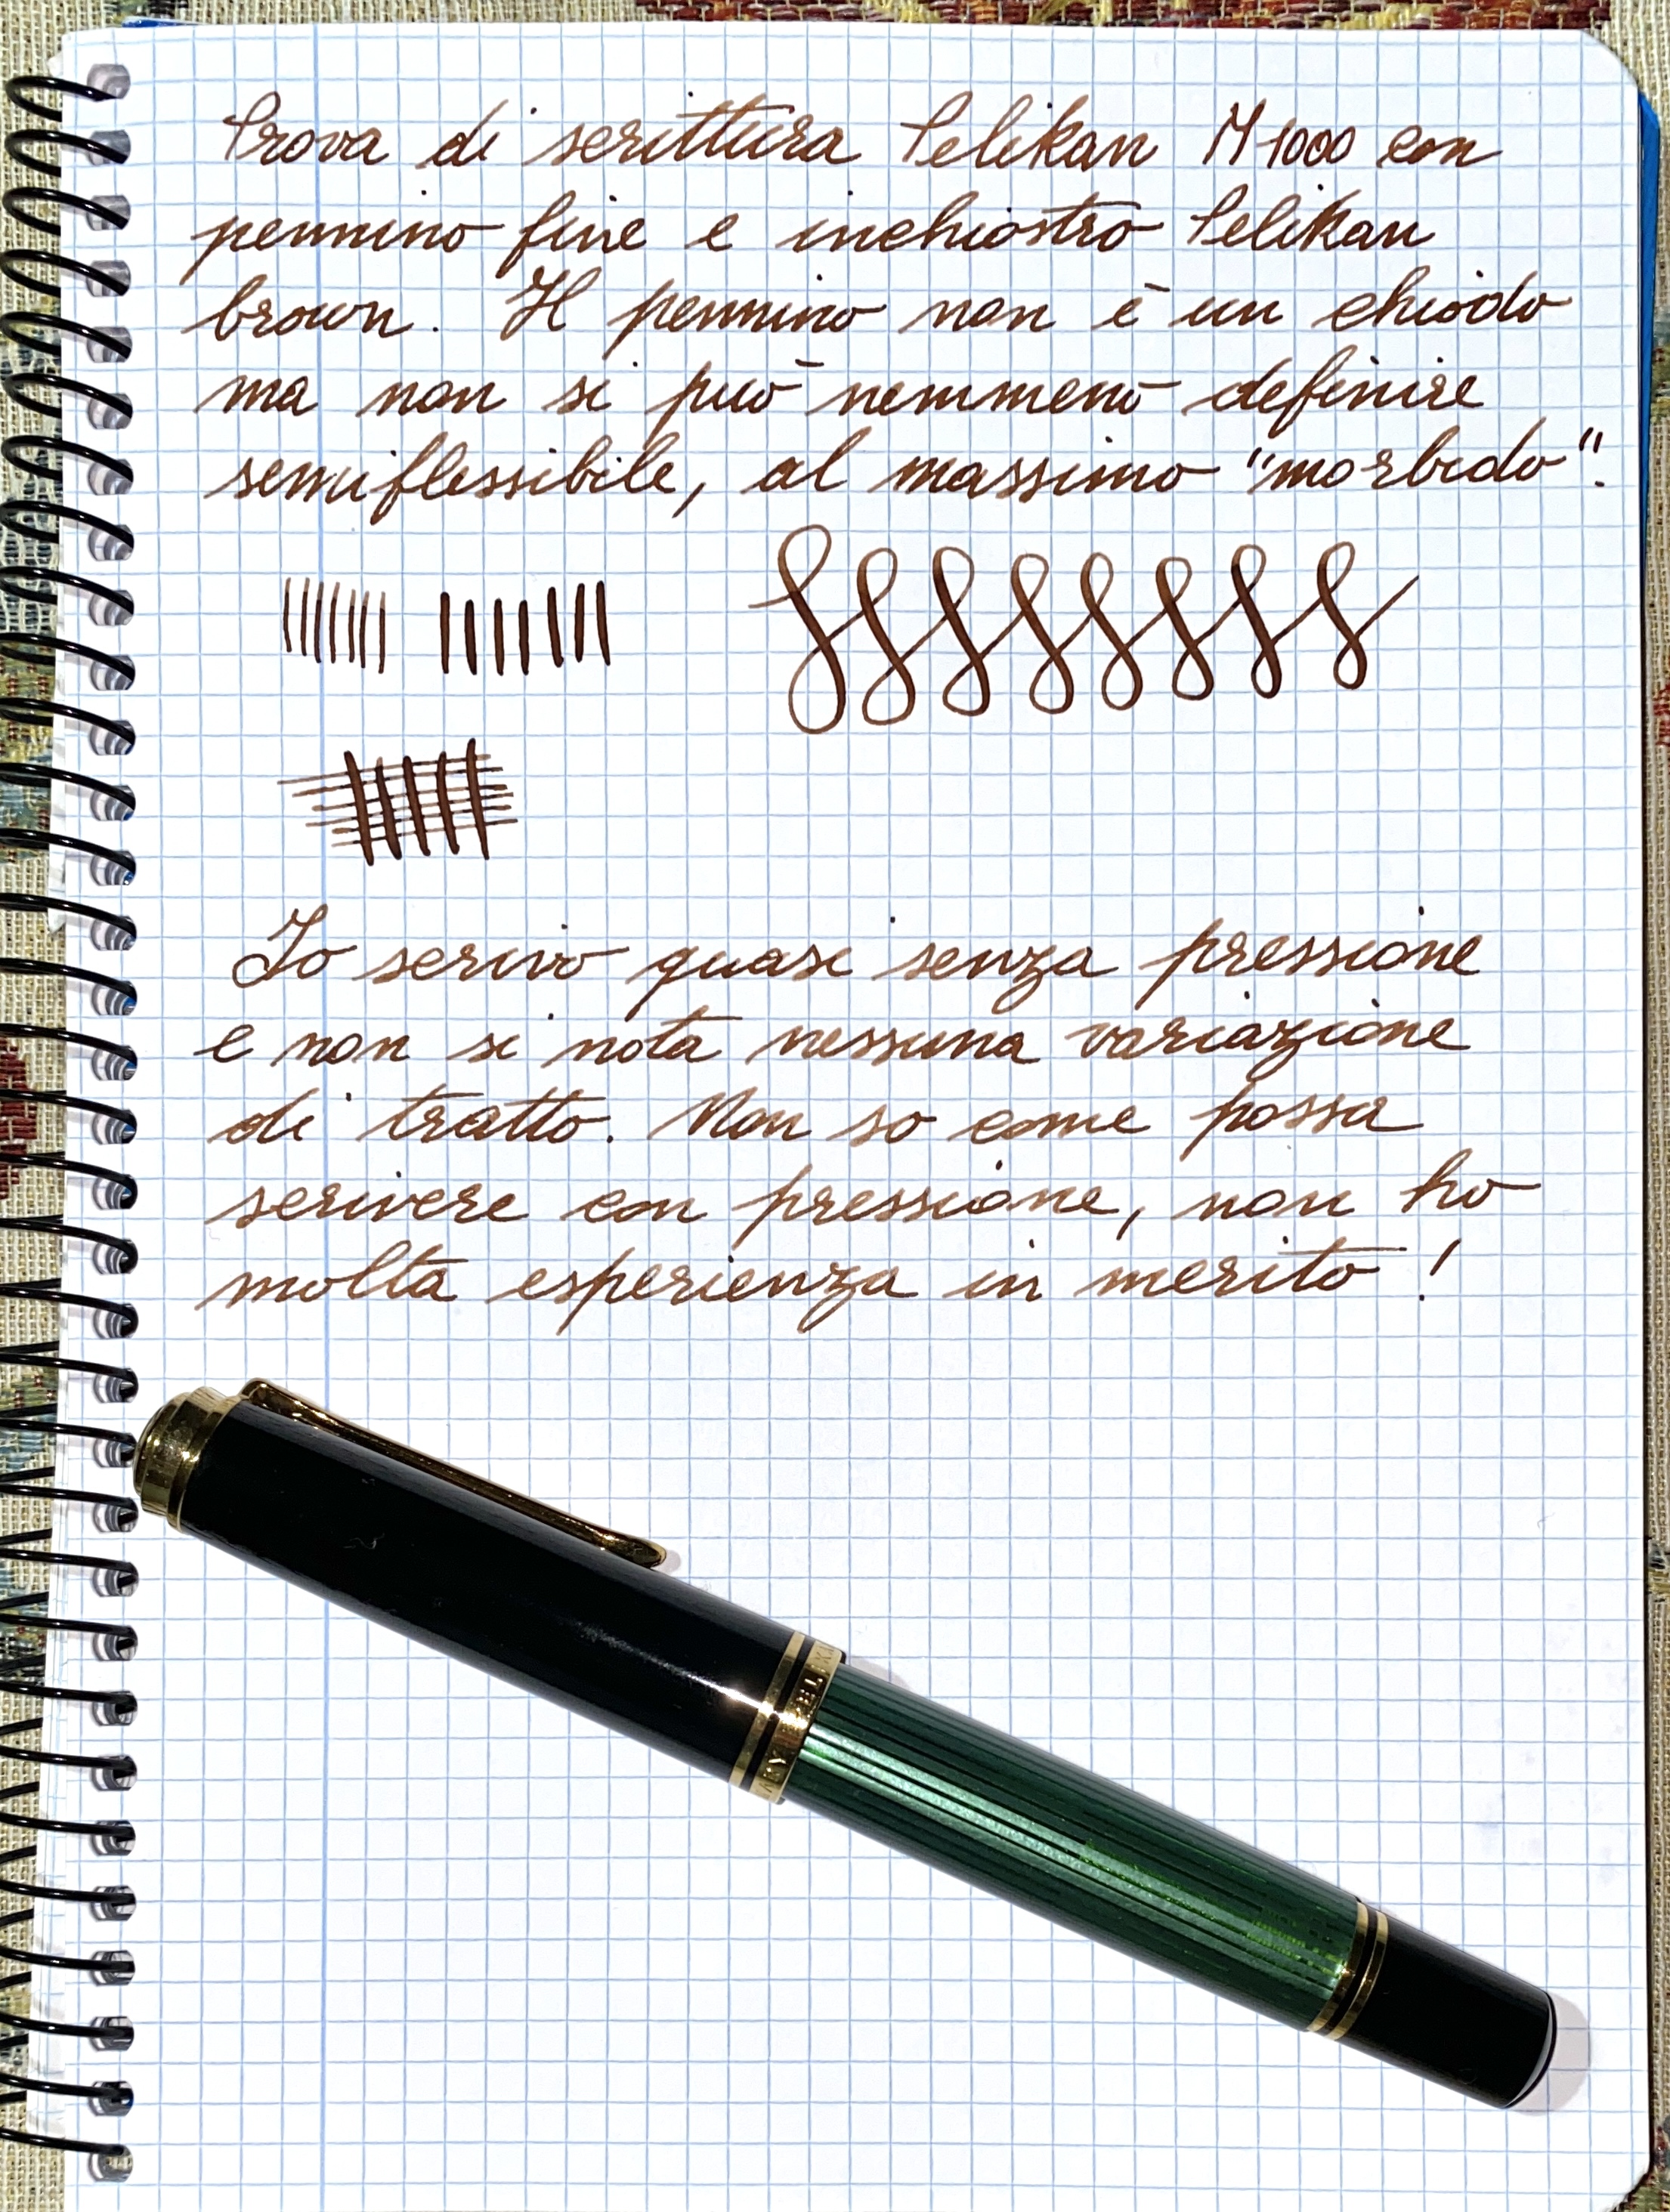 Prova di scrittura Pelikan M1000 con
pennino fine e inchiostro Pelikan
brown. Il pennino non è un chiodo
ma non si può nemmeno definire
semiflessibile, al massimo "morbido".
Io scrivo quasi senza pressione
e non si nota nessuna variazione
di tratto. Non so come possa
scrivere con pressione, non ho
molta esperienza in merito!